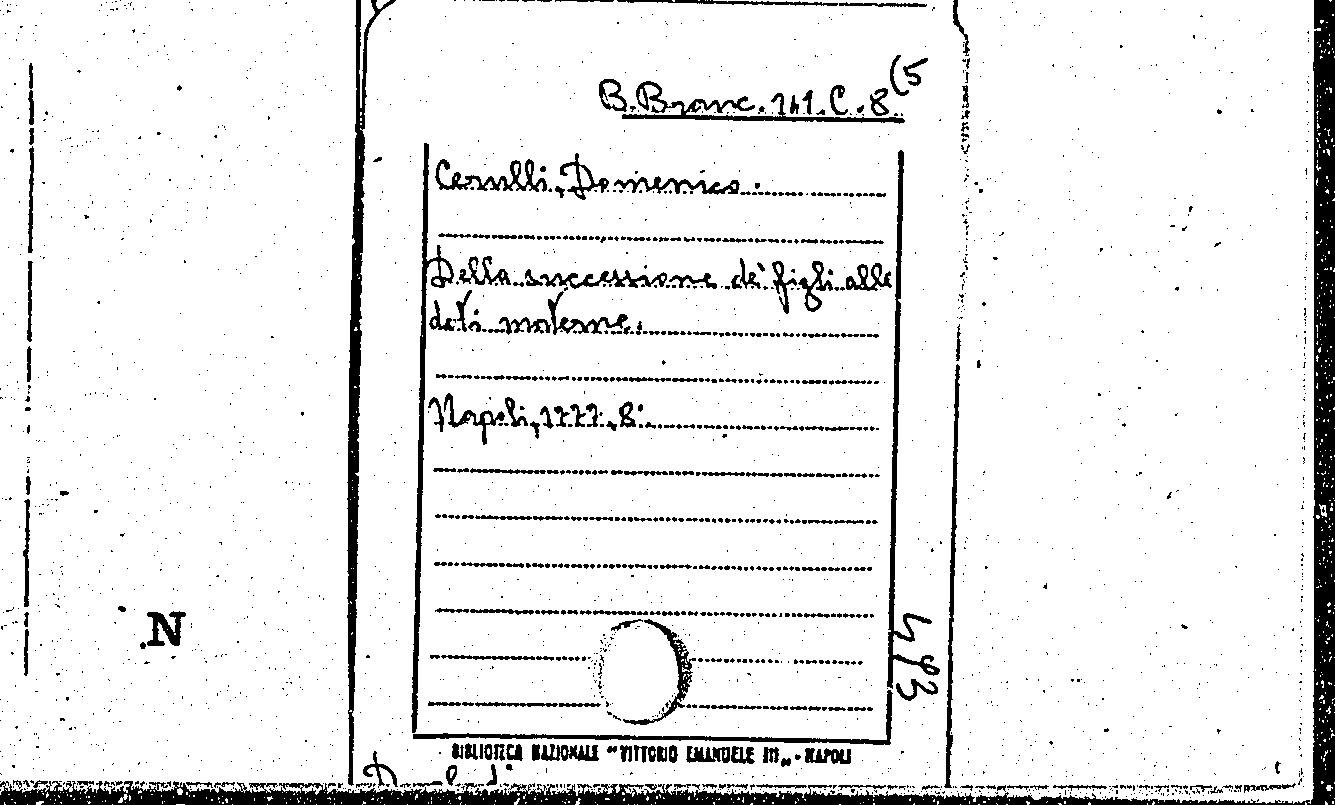 B. Branc. 141. C. 8 (5
Cerulli, Domenico.
Della successione de' figli alle
doti materne.
Napoli, 1777, 8°.
N
BIBLIOTECA NAZIONALE "VITTORIO EMANUELE III" - NAPOLI